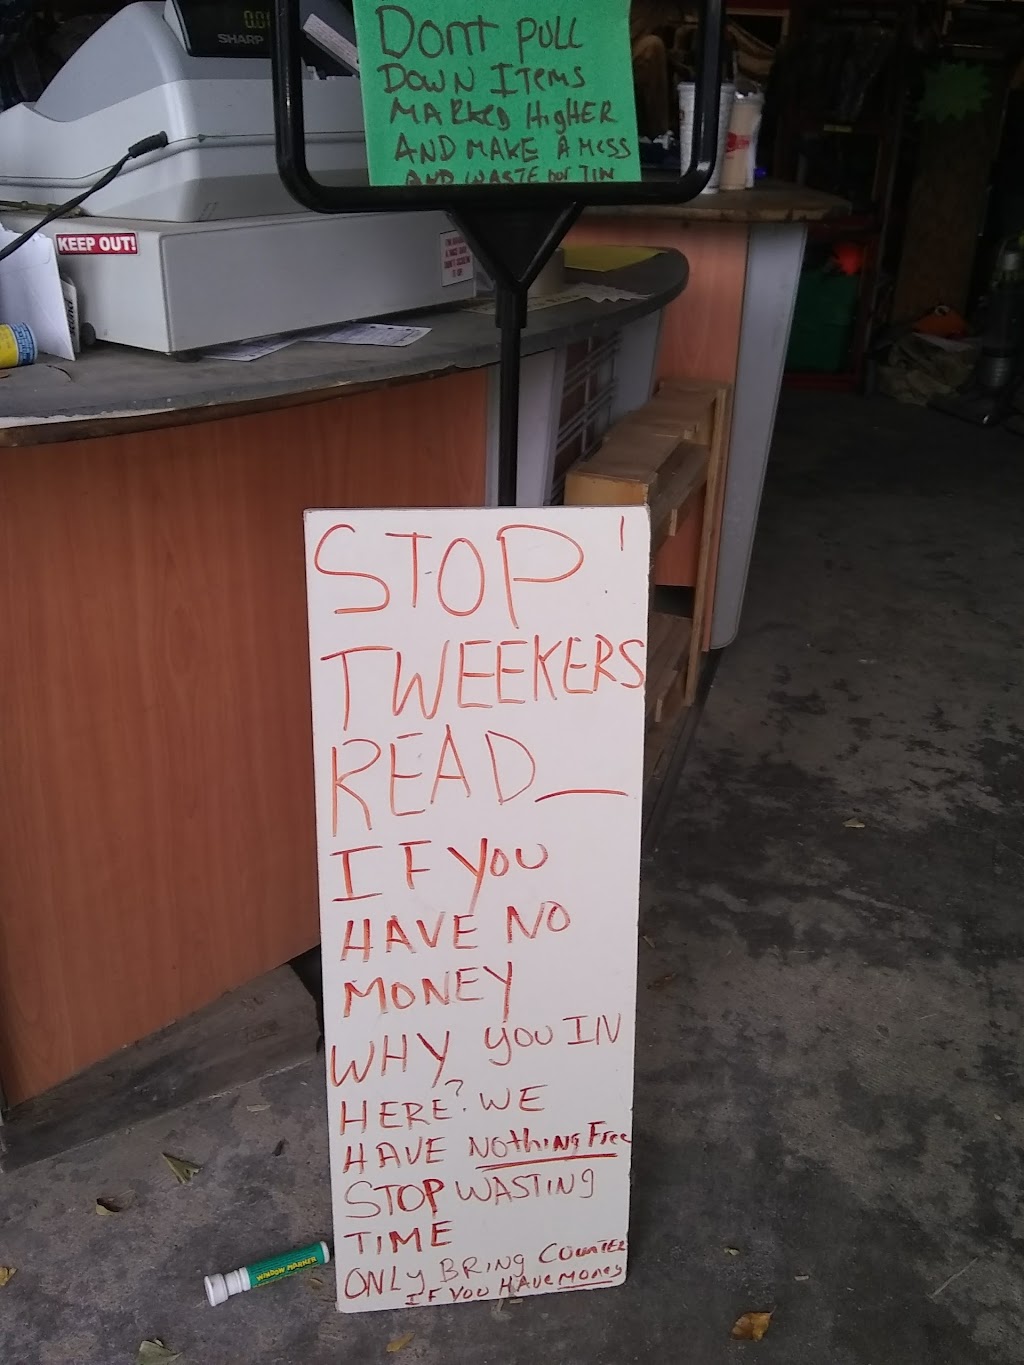 0.01
SHARP
DONT PULL
DOWN ITEMS
MARKED HIGHER
AND MAKE A MESS
AND WASTE OUR TIM
KEEP OUT!
STOP!
TWEEKERS
READ_
IF YOU
HAVE NO
MONEY
WHY YOU IN
HERE? WE
HAVE NOTHING FREE
STOP WASTING
TIME
ONLY BRING COUNTER
IF YOU HAVE MONEY
WINDOW MARKER